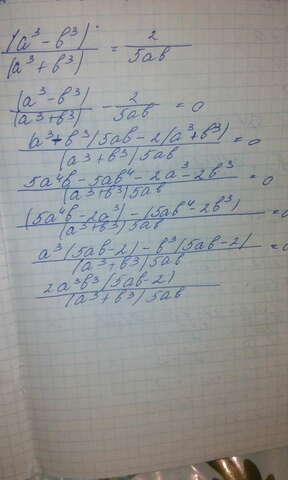 (a³ - b³) / (a³ + b³) = 2 / 5ab
(a³ - b³) / (a³ + b³) - 2 / 5ab = 0
a³ + b³ / 5ab - 2 / a³ + b³) / (a³ + b³) 5ab = 0
5a⁴b - 5ab⁴ - 2a³ - 2b³ / (a³ + b³) 5ab = 0
(5a⁴b - 2a³) - (5ab⁴ - 2b³) / (a³ + b³) 5ab = 0
a³ (5ab - 2) - b³ (5ab - 2) / (a³ + b³) 5ab = 0
2a³b³ (5ab - 2) / (a³ + b³) 5ab